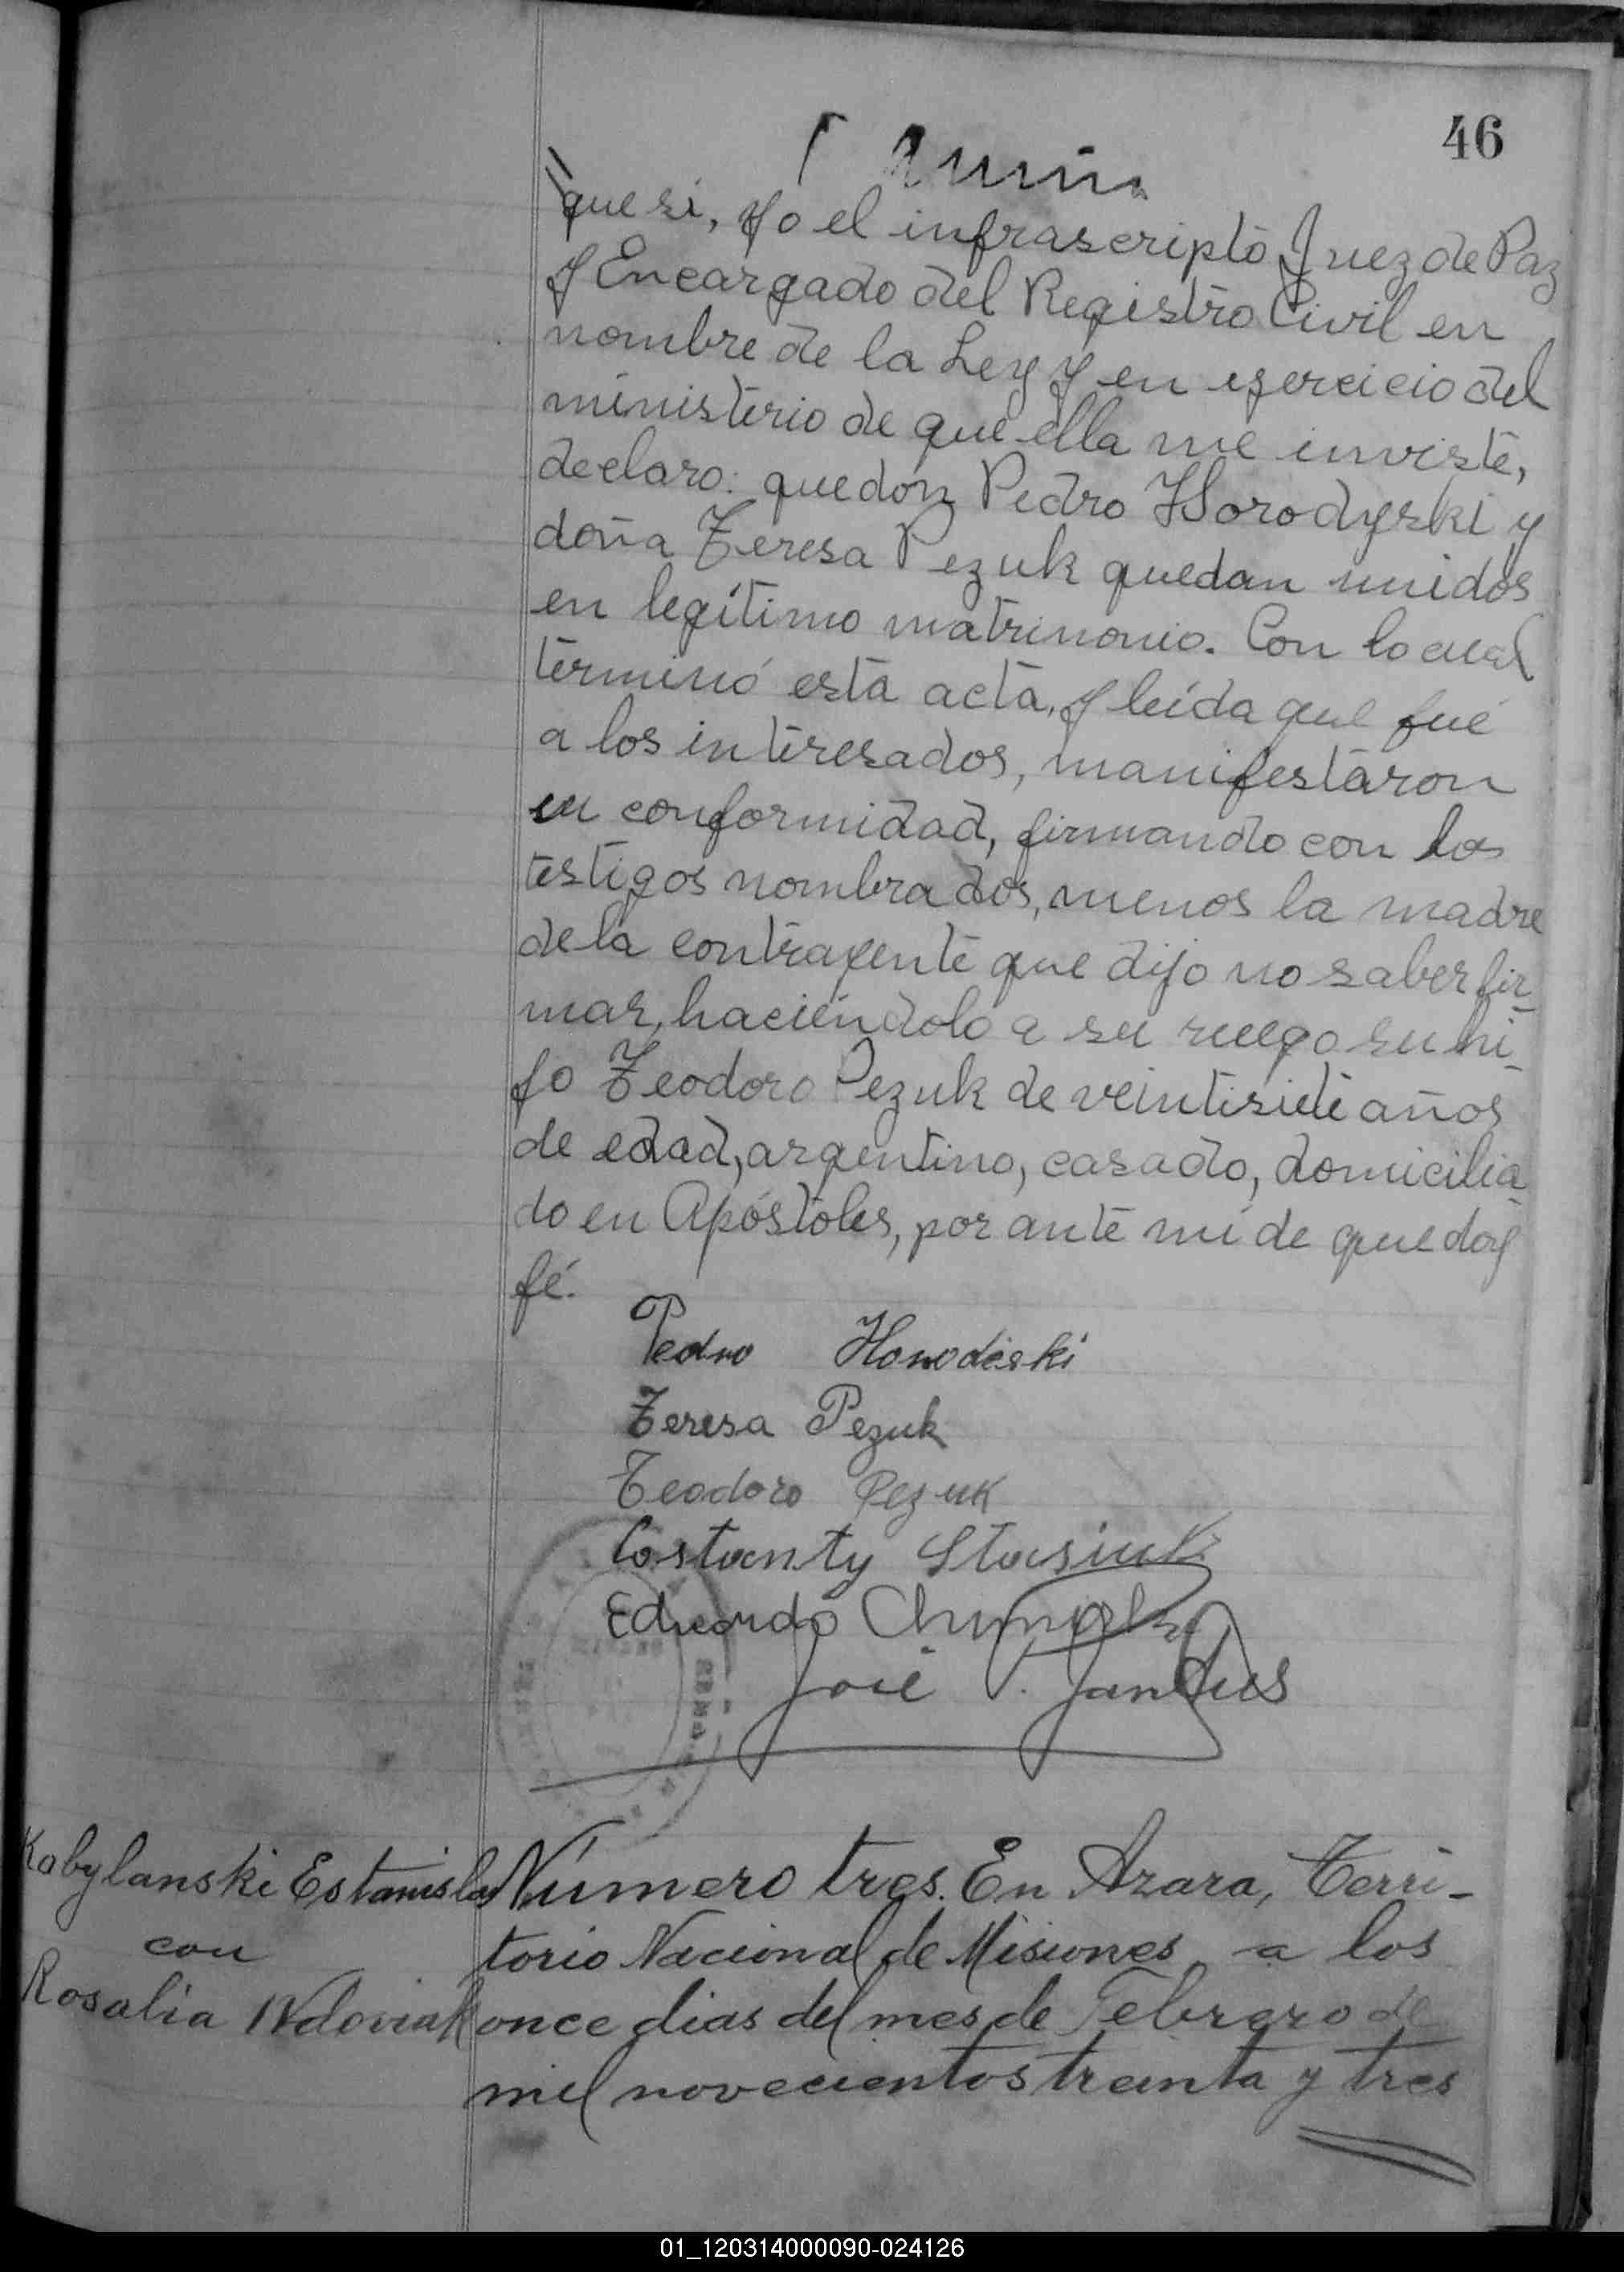 46
que si, yo el infrascripto Juez de Paz
y Encargado del Registro Civil en
nombre de la Ley y en ejercicio del
ministerio de que ella me inviste,
declaro: que don Pedro Horodyski y
doña Teresa Pezuk quedan unidos
en legítimo matrimonio. Con lo cual
terminó esta acta, y leída que fué
a los interesados, manifestaron
su conformidad, firmando con los
testigos nombrados, menos la madre
de la contrayente que dijo no saber fir-
mar, haciéndolo a su ruego su hi-
jo Teodoro Pezuk de veintisiete años
de edad, argentino, casado, domicilia-
do en Apóstoles, por ante mi de que doy
fé.
Pedro Horodiski
Teresa Pezuk
Teodoro Pezuk
Costanty Stasiuk
Eduardo
José
Kobylanski Estanislao
con
Rosalia
Número tres. En Azara, Terri-
torio Nacional de Misiones, a los
once dias del mes de Febrero de
mil novecientos treinta y tres
01_120314000090-024126